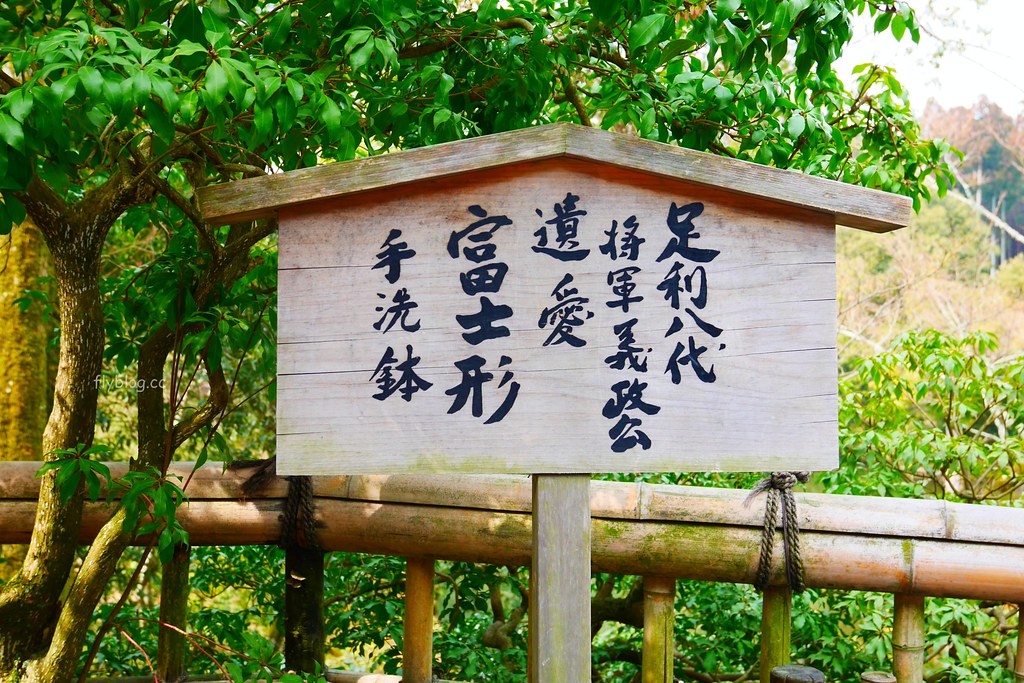 足利八代
将軍義政公
遺愛
富士形
手洗鉢
flyblog.cc